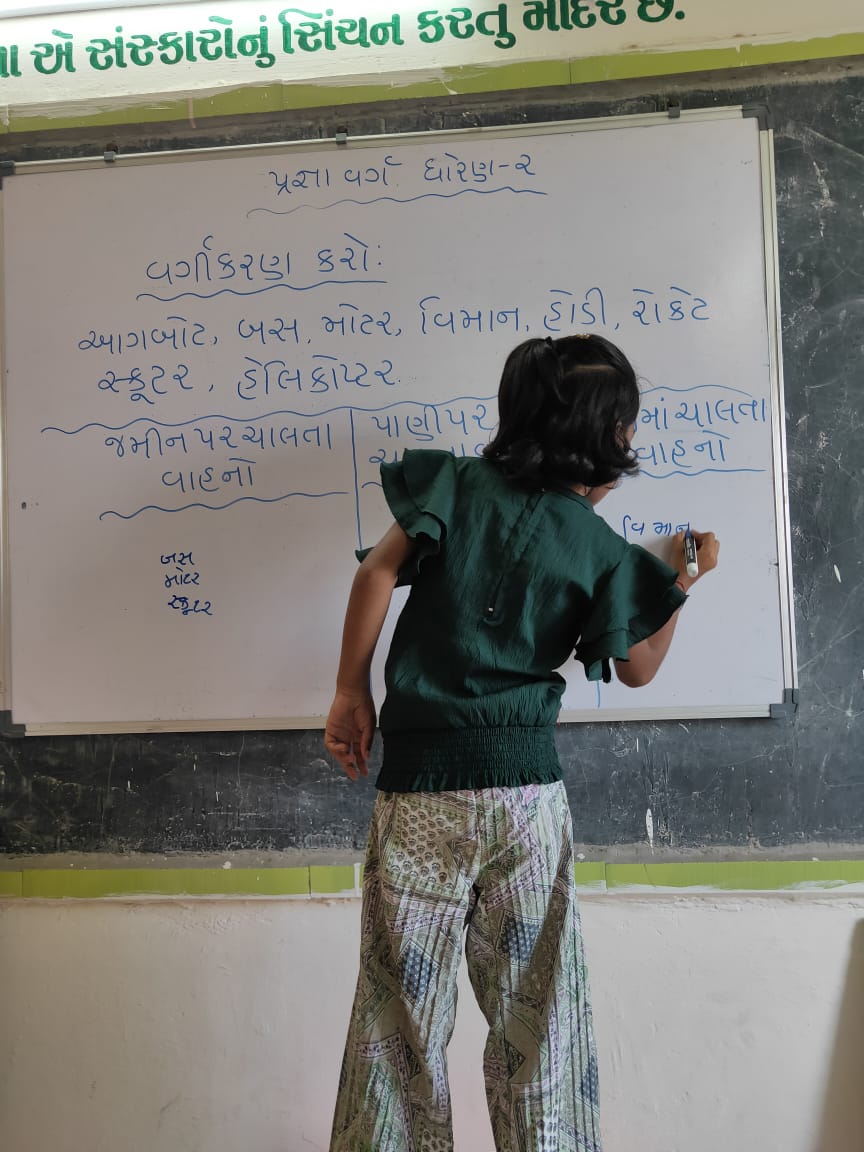 એ સંસ્કારોનું સિંચન કરતુ મંદિર છે.
પ્રજ્ઞા વર્ગ ધોરણ-૨
વર્ગીકરણ કરો:
આગબોટ, બસ, મોટર, વિમાન, હોડી, રોકેટ
સ્કૂટર, હેલિકોપ્ટર.
જમીન પર ચાલતા
વાહનો
પાણી પર
માં ચાલતા
વાહનો
બસ
મોટર
સ્કૂટર
વિમાન